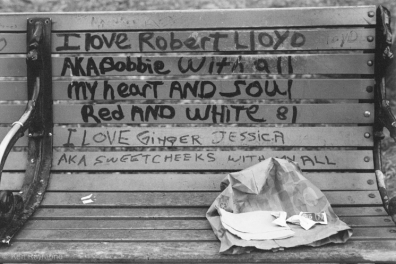 I love Robert Lloyd
AKA Bobbie With all
my heart AND SOUL
Red AND WHITE 81
I LOVE GINGER JESSICA
AKA SWEETCHEEKS WITH MY ALL